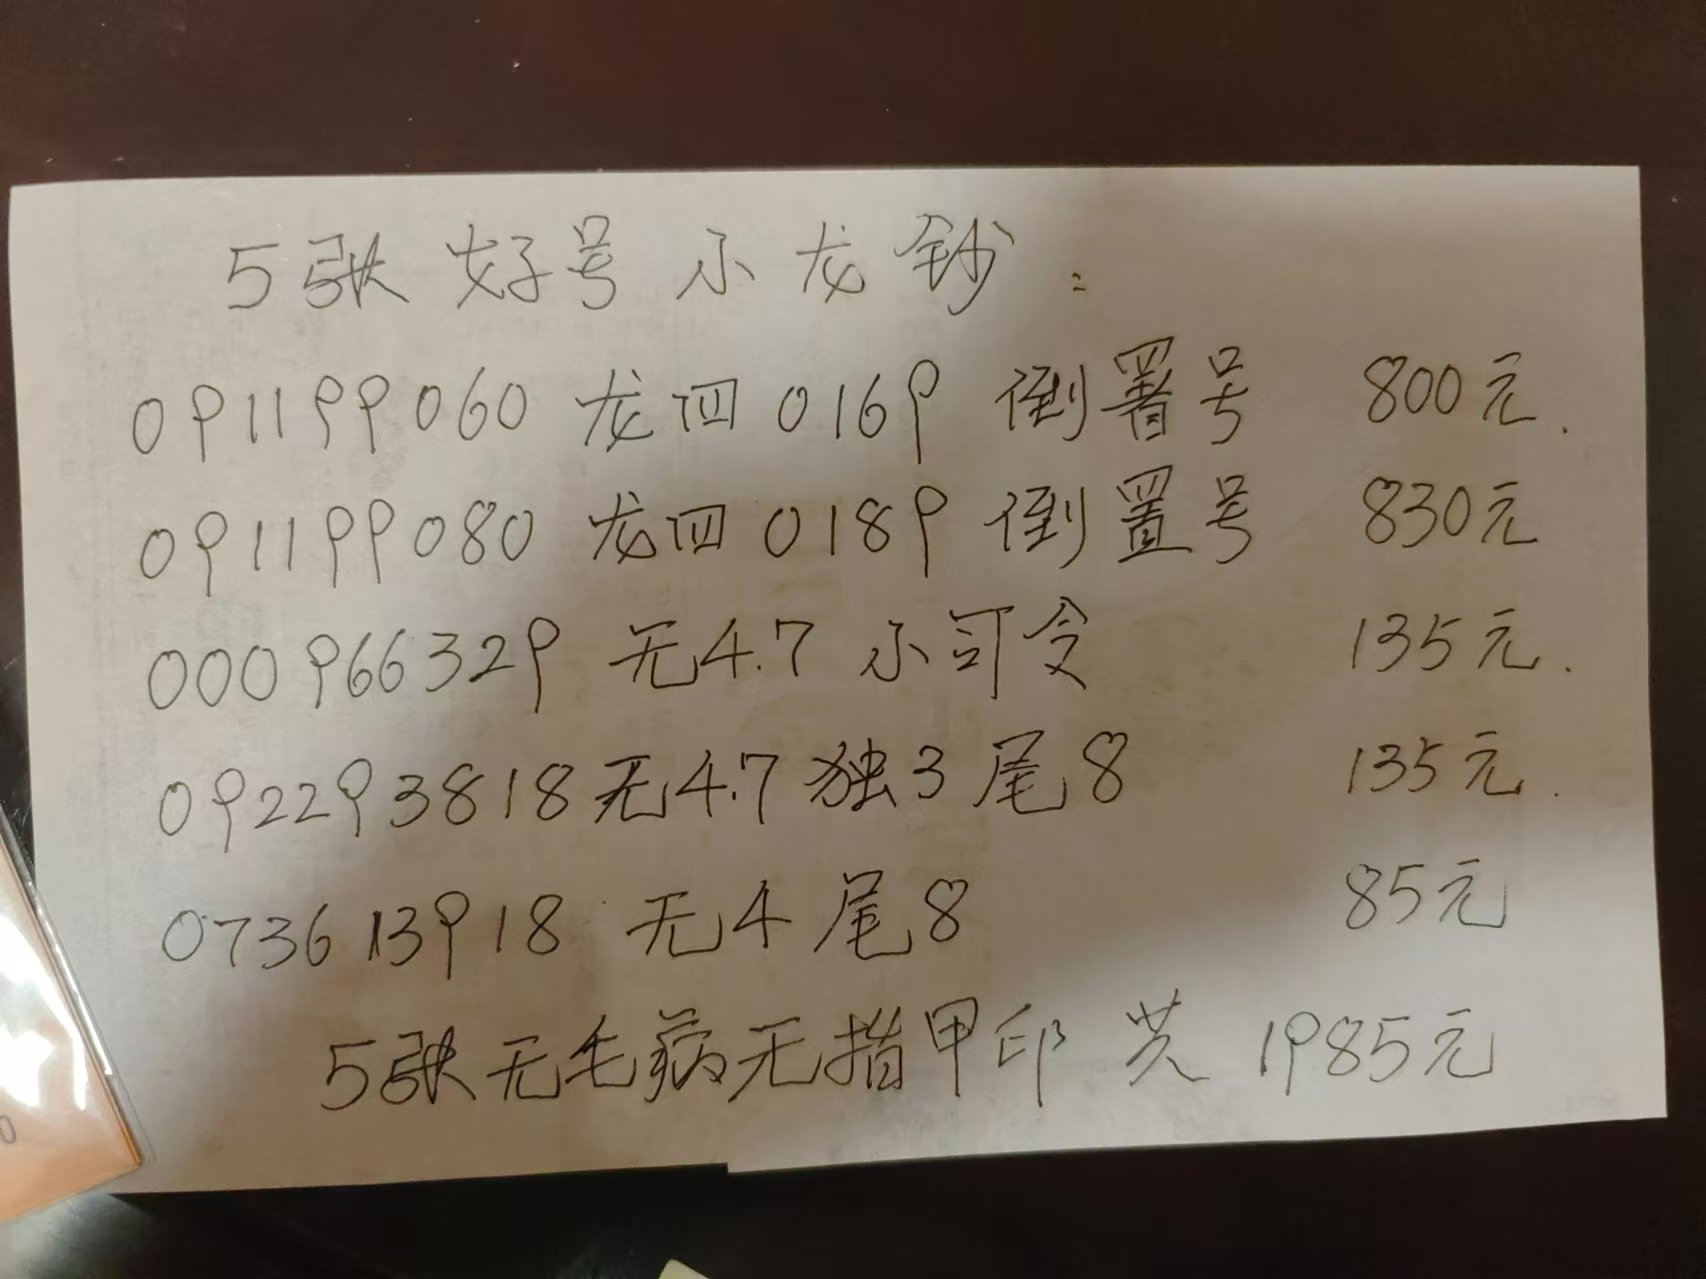 5张好号小龙钞：
091199060 龙四0169 倒置号 800元.
091199080 龙四0189 倒置号 830元
000966329 无4.7 小司令 135元.
092293818 无4.7 独3尾8 135元.
073613918 无4尾8 85元
5张无毛病无指甲印 共 1985元